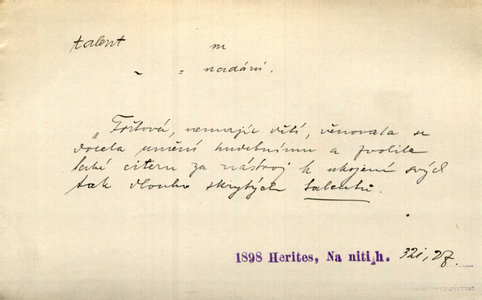 talent m
~ = nadání.
„Tóthová, nemajíc dětí, věnovala se
docela umění hudebnímu a zvolila
také citeru za nástroj k ukojení svých
tak dlouho skrytých talentů.
1898 Herites, Na niti, h. 32i, 27.